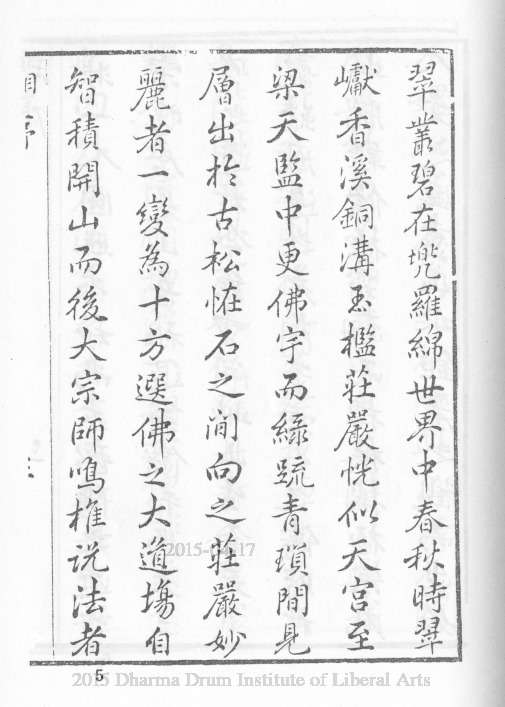 翠叢碧在兠羅綿世界中春秋時翠
巘香溪銅溝玉檻莊嚴恍似天宮至
梁天監中更佛宇而綠䟽青瑣間見
層出扵古松恠石之间向之莊嚴妙
麗者一變為十方選佛之大道塲自
智積開山而後大宗師鳴椎说法者
5
2015-04-17
2015 Dharma Drum Institute of Liberal Arts